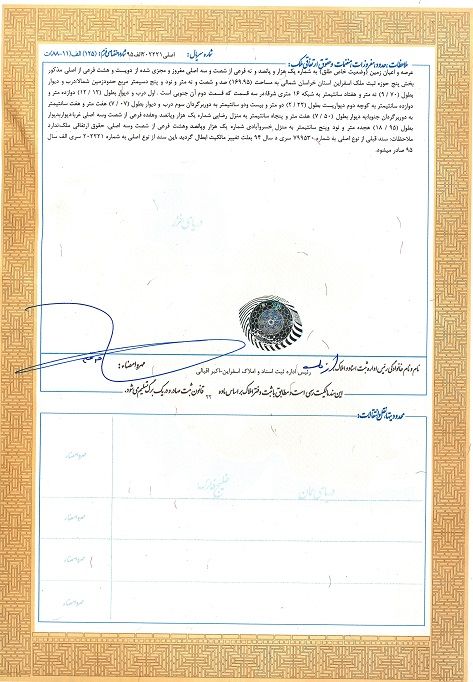 شماره سریال: اصلی ۲۰۲۲۲۱ الف ۹۵ (۱۲۵) الف (۱۱-۸۸) ت
ملاحظات، حدود، مفروزات، منضمات و حقوق ارتفاقی ملک:
عرصه و اعیان زمین (وضعیت خاص طلق) به شماره یک هزار و پانصد و نه فرعی از شصت و سه اصلی مفروز و مجزی شده از دویست و هشت فرعی از اصلی مذکور
بخش پنج حوزه ثبت ملک اسفراین استان خراسان شمالی به مساحت (۱۶۹.۹۵) صد و شصت و نه متر و نود و پنج دسیمتر مربع حدودزمین شمالا:درب و دیوار
بطول (۹ / ۷۰) نه متر و هفتاد سانتیمتر به شبکه ۱۶ متری شرقا:در سه قسمت که قسمت دوم آن جنوبی است . اول درب و دیوار بطول (۱۲ / ۱۲) دوازده متر و
دوازده سانتیمتر به کوچه دوم دیواریست بطول (۲ / ۲۲) دو متر و بیست ودو سانتیمتر به دوربرگردان سوم درب و دیوار بطول (۷ / ۰۷) هفت متر و هفت سانتیمتر
به دوربرگردان جنوبا:به دیوار بطول (۷ / ۵۰) هفت متر و پنجاه سانتیمتر به منزل رضایی شماره یک هزار وپانصد وهفده فرعی از شصت وسه اصلی غربا:دیواربدیوار
بطول (۱۸ / ۹۵) هجده متر و نود وپنج سانتیمتر به منزل خسروآبادی شماره یک هزار وپانصد وهشت فرعی از شصت و سه اصلی. حقوق ارتفاقی ملک:ندارد
ملاحظات: سند قبلی از نوع اصلی به شماره ۷۹۹۵۳۰ سری د سال ۹۴ بعلت تغییر مالکیت ابطال گردید باین سند از نوع اصلی به شماره ۲۰۲۲۲۱ سری الف سال
۹۵ صادر میشود.
دریای خزر
نام و نام خانوادگی رئیس اداره ثبت اسناد و املاک: مهر و امضاء:
رئیس اداره ثبت اسناد و املاک اسفراین-اکبر اقبالی
این سند مالکیت رسمی است و مطابق با ثبت و دفتر املاک بر اساس ماده ۲۲ قانون ثبت صادر و در یک برگ تنظیم می‌شود.
محدودیتها، نقل و انتقالات:
مهر و امضاء
دریای عمان خلیج فارس
مهر و امضاء
مهر و امضاء
مهر و امضاء